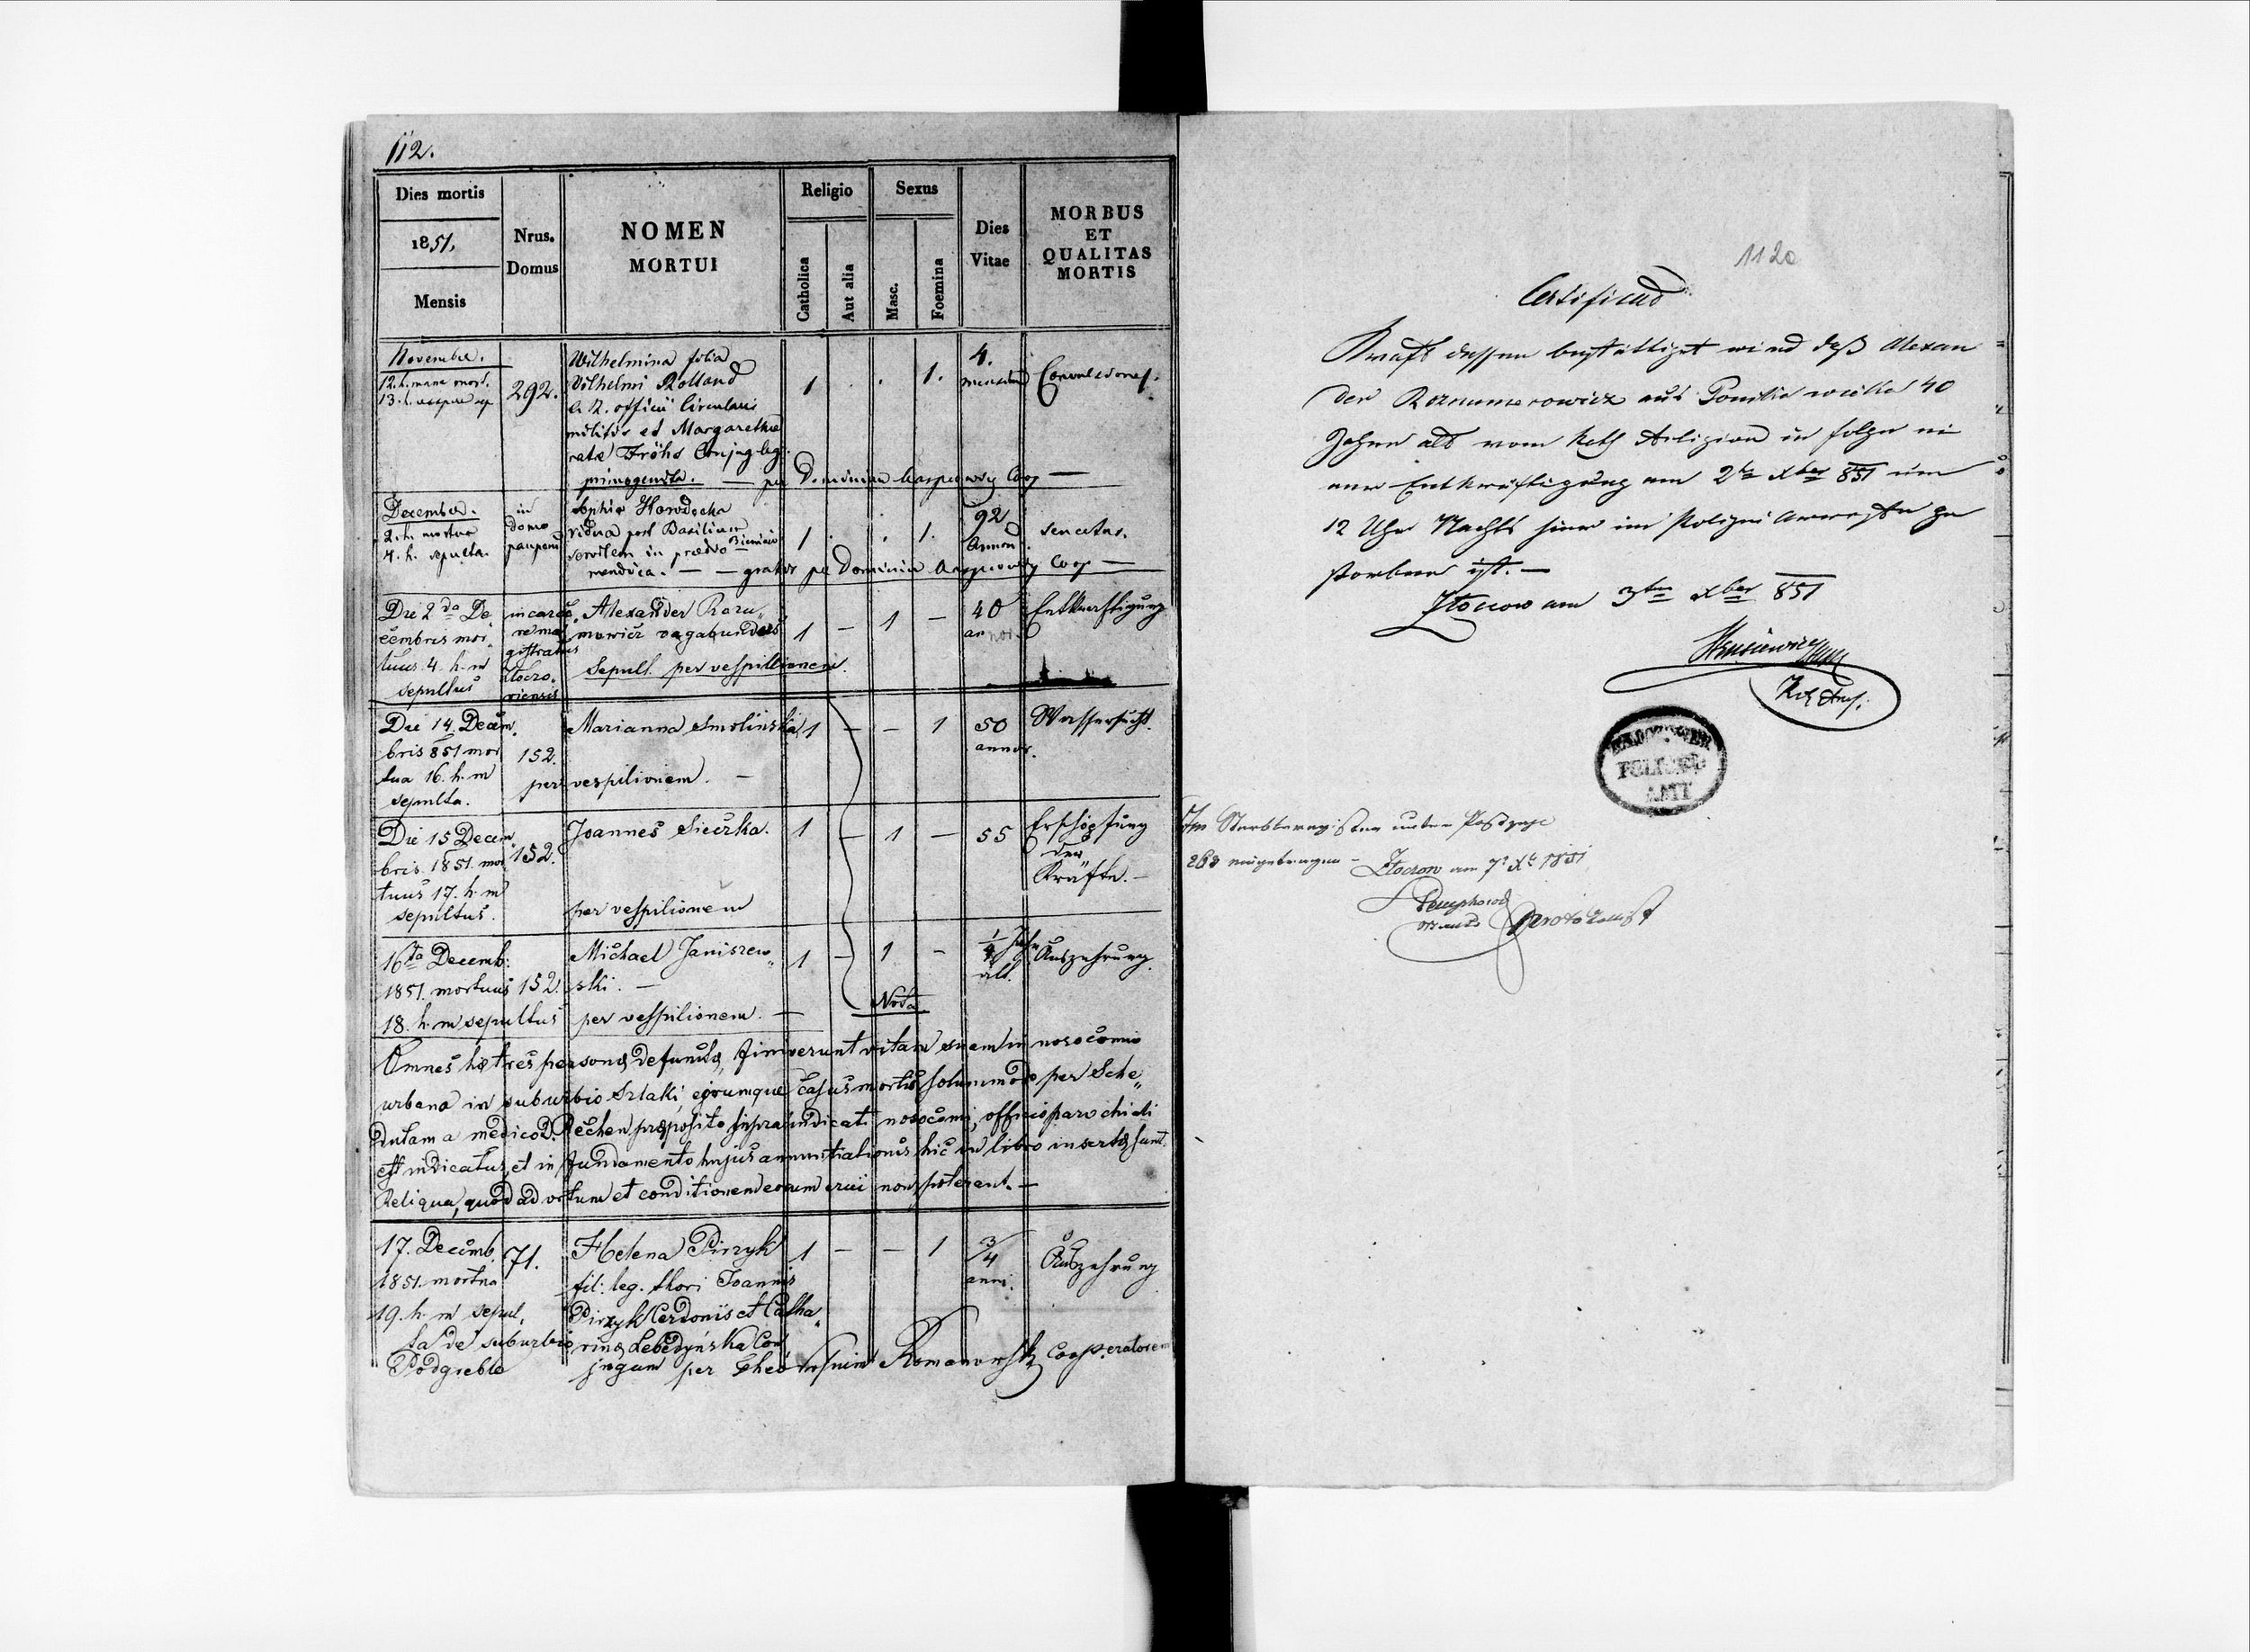 112.
Dies mortis
1851.
Mensis
Nrus.
Domus
NOMEN
MORTUI
Religio
Catholica
Aut alia
Sexus
Masc.
Foemina
Dies
Vitae
MORBUS
ET
QUALITAS
MORTIS
Novembri.
12. h. mane mort.
13. h.
292.
Wilhelmina filia
Vilhelmi Rolland
officii Circularis
militis et Margarethae
natae Fröhs Conjug. leg.
primogenita. — per Dominum Coop —
1 . . 1.
4.
mensium
Convulsiones.
Decembri.
2. h. mortua
4. h. sepulta.
in
domo
pauperum
Sophia Horodecka
vidua post Basilium
mendica. — — gratis per Dominum Coop —
1 . . 1.
92
annor.
senectus.
Die 2da De
cembris mor
tuus 4. h. m
sepultus
in carce
re ma
gistratus
Zloczo
viensis
Alexander Rozu„
mowicz vagabundus
Sepult. per vespillionem.
1 — 1 —
40
annor.
Entkraeftigung
Die 14. Decem
bris 851 mor
tua 16. h. m
sepulta.
152.
Marianna Smolinska
per vespilionem. —
1 — — 1
50
annor.
Wassersucht.
Die 15 Decem
bris 1851. mor
tuus 17. h. m
sepultus.
152.
Joannes Sieczka.
per vespilionem
1 — 1 —
55
Erschöpfung
der
Kräfte. —
16ta Decemb:
1851. mortuus
18. h. m sepultus
152.
Michael Janiszew„
ski. —
per vespilionem. —
1 — 1 —
1/4 Jahr
alt.
Auszehrung.
Nota
Omnes hae tres personae defunctae, finiverunt vitam suam in nosocomio
urbano in suburbio Szlaki, eorumque casus mortis solummodo per Sche„
dulam a medico D. Rechen praeposito supra indicati nosocomi, officio parochiali
est indicatus, et in fundamento hujus annuntiationis hic in libro insertae sunt.
Reliqua, quod ad ortum et conditionem eorum erui non poterant. —
17. Decemb.
1851. mortua
19. h. m sepul„
ta de suburbio
Podgreble
71.
Helena Pirzyk
fil: leg. thori Joannis
Pirzyk Cerdonis et Catha„
rinae Lebedynska Con
jugum per Romanowski Cooperatorem
1 — — 1
3/4
anni.
Auszehrung
112a
Certificad
Kraft dessen bestättiget wird daß Alexan
der Rozumerowicz aus 40
Jahre alt vom Kath Religion in folge ei
ner Entkräftigung am 2ten Xber 851 um
12 Uhr Nachts hier im Polizei Arreste ge
storben ist. —
Zloczow am 3ten Xber 851
POLIZEI
AMT
Im Sterbberegister unter Postzage
263 eingetragen — Zloczow am 7t Xb 1851
Protokollist